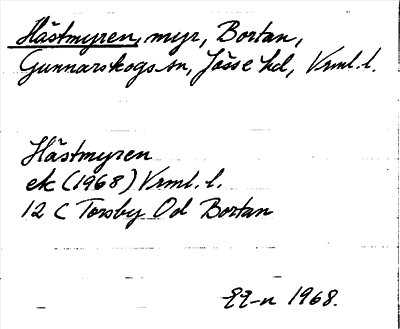 Hästmyren, myr, Bortan,
Gunnarskogs sn, Jösse hd, Vrml. l.
Hästmyren
ek (1968) Vrml. l.
12 C Torsby Od Bortan
1968.